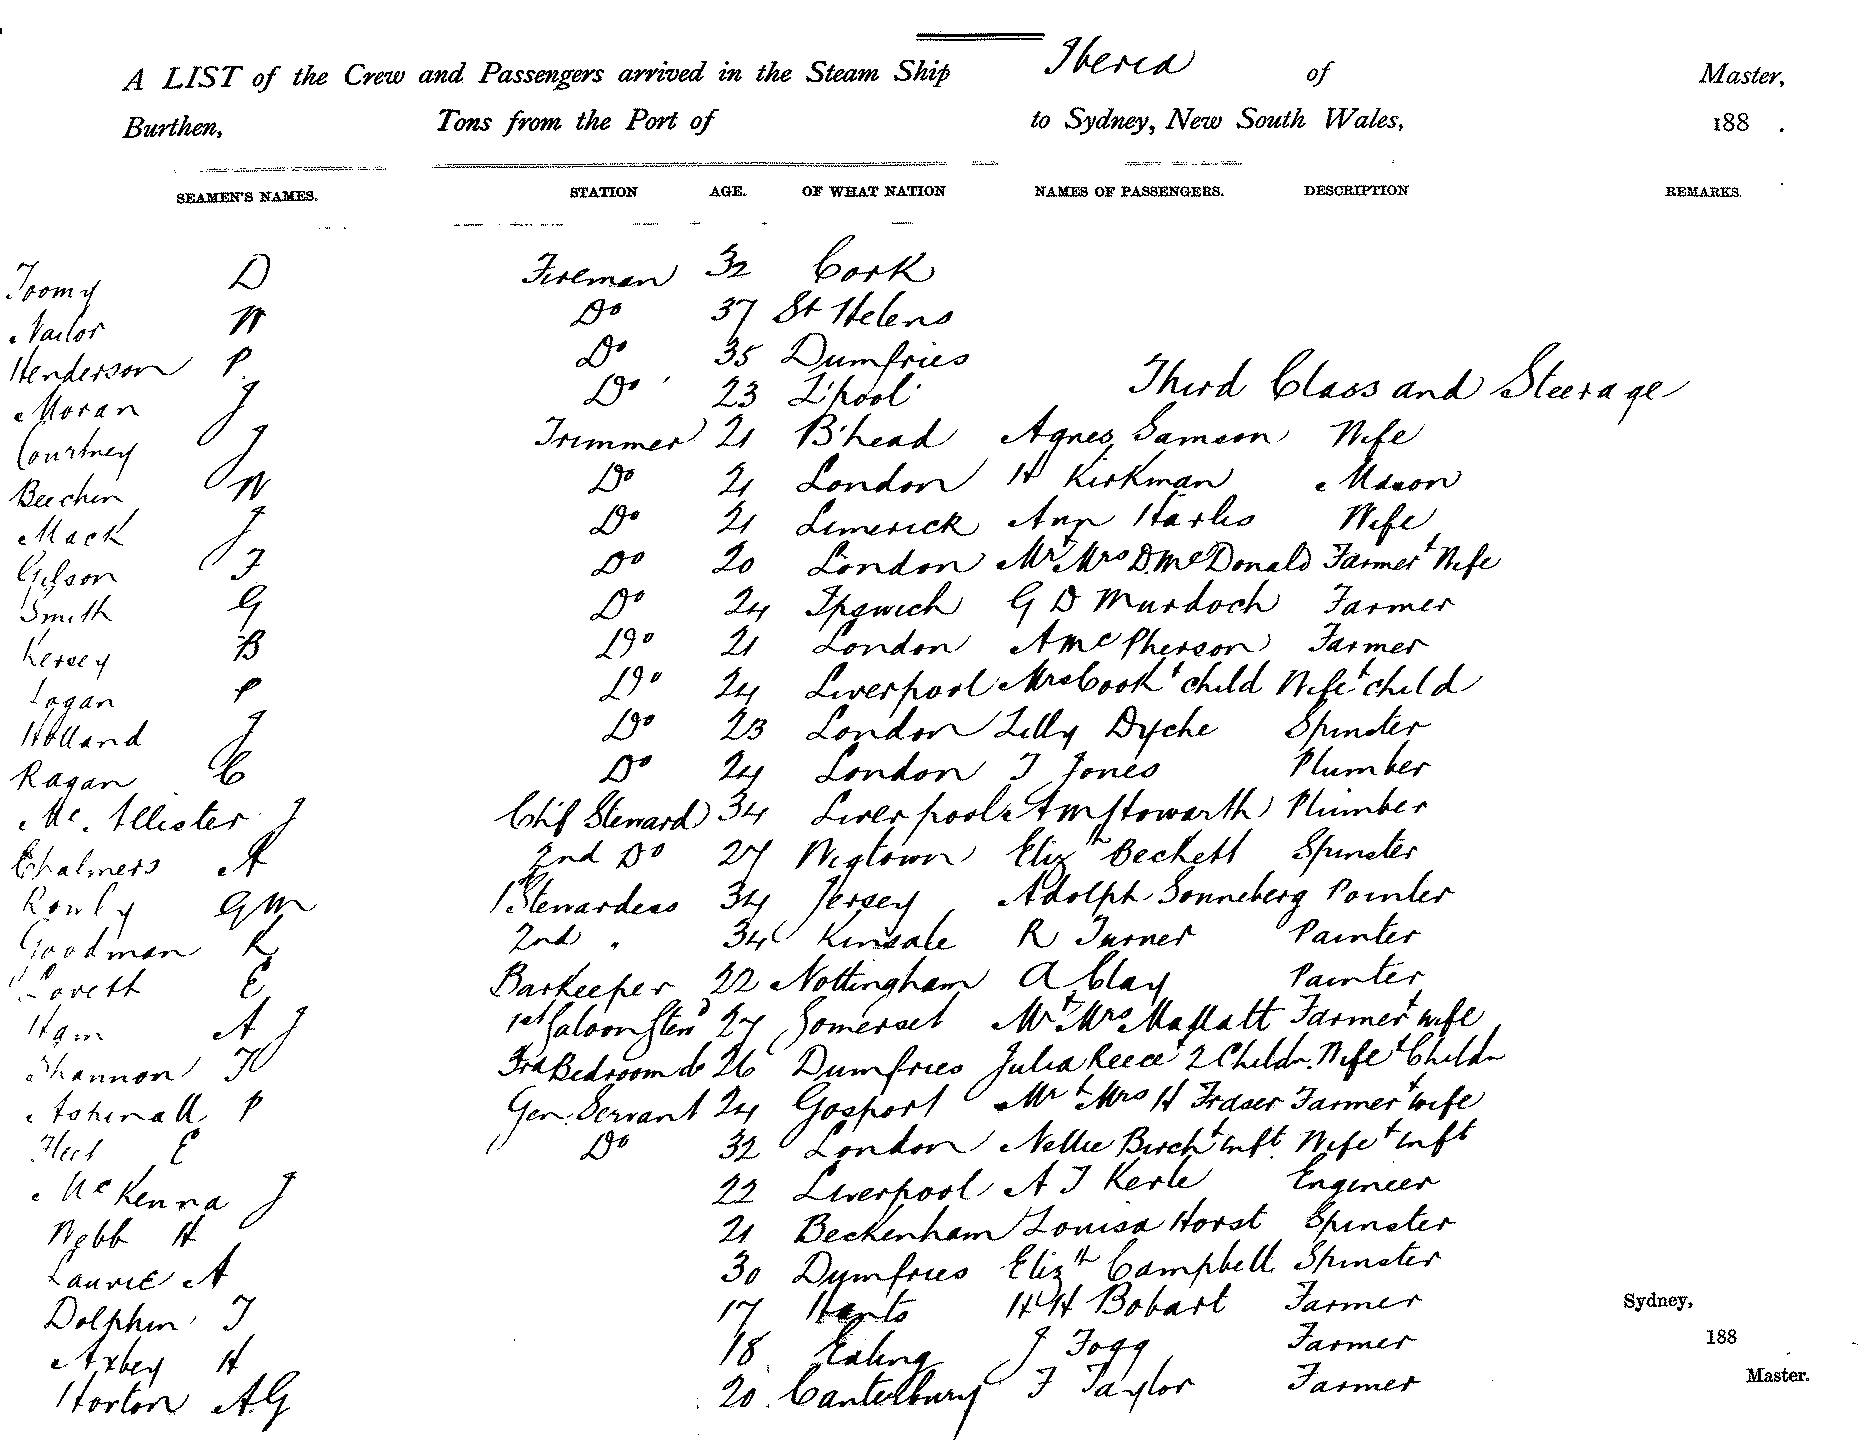 A LIST of the Crew and Passengers arrived in the Steam Ship Iberia of Master,
Burthen, Tons from the Port of to Sydney, New South Wales, 188 .
SEAMEN'S NAMES. STATION AGE. OF WHAT NATION NAMES OF PASSENGERS. DESCRIPTION REMARKS.
Toomy D Fireman 32 Cork
Nailor W Do 37 St Helens
Henderson P. Do 35 Dumfries
Moran J Do 23 L'pool Third Class and Steerage
Courtney J Trimmer 21 B'head Agnes Samson Wife
Beechin W Do 21 London H Kirkman Mason
Mack J Do 21 Limerick Ann Harlis Wife
Gilson F Do 20 London Mr + Mrs D. McDonald Farmer + Wife
Smith G Do 24 Ipswich G D Murdoch Farmer
Kersey B Do 21 London A McPherson Farmer
Logan P Do 24 Liverpool Mrs Cook + child Wife + child
Holland J Do 23 London Lilly Dyche Spinster
Ragan C Do 24 London T Jones Plumber
Mc Allister J Ch'f Steward 34 Liverpool Howarth Plumber
Chalmers A 2nd Do 27 Wigtown Elizth Beckett Spinster
Rowly G M 1 Stewardess 34 Jersey Adolph Sonneberg Pointer
Goodman K 2nd " 34 Kinsale R Turner Painter
Lovett E Barkeeper 22 Nottingham A Clay Painter
Ham A J 1st Saloon Stewd 27 Somerset Mr + Mrs Maflatt Farmer + wife
Shannon H 3rd Bedroom do 26 Dumfries Julia Reece + 2 Childn. Wife + Childn
Ashinall P Gen. Servant 24 Gosport Mr + Mrs H Fraser Farmer + wife
E Do 32 London Nellie Birch + Inft. Wife + Inft
McKenna J 22 Liverpool A J Kerle Engineer
Webb H 21 Beckenham Louisa Horst Spinster
Laurie A 30 Dumfries Elizth Campbell Spinster
Dolphin T 17 Hants H H Bobart Farmer Sydney,
Axbey H 18 Ealing J Fogg Farmer 188
Horton A G 20 Canterbury F Taylor Farmer Master.